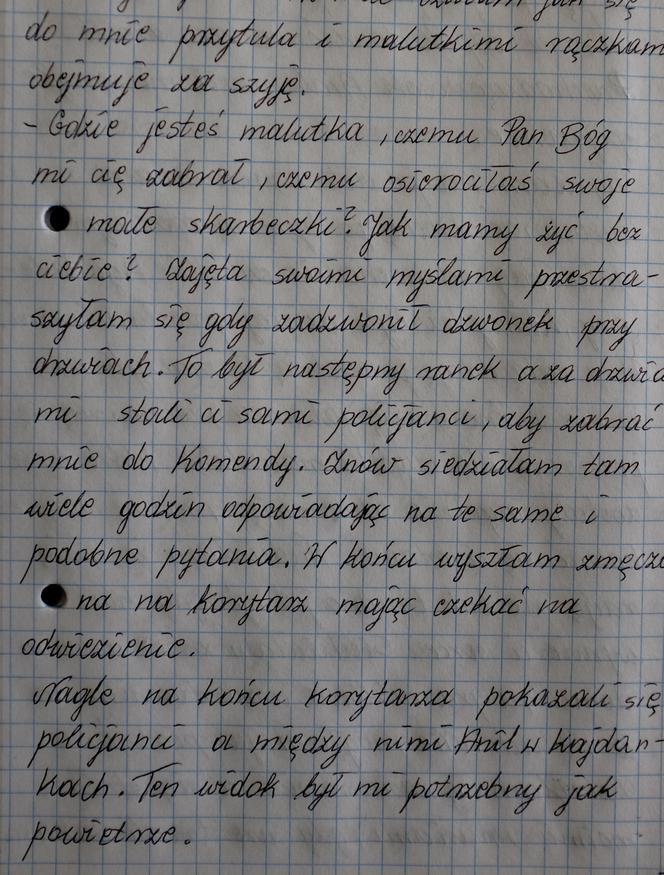 do mnie przytula i malutkimi rączkam
obejmuje za szyję.
- Gdzie jesteś malutka, czemu Pan Bóg
mi cię zabrał, czemu osierociłaś swoje
małe skarbeczki? Jak mamy żyć bez
ciebie? Zajęta swoimi myślami przestra-
szyłam się gdy zadzwonił dzwonek przy
drzwiach. To był następny ranek a za drzwia
mi stali ci sami policjanci, aby zabrać
mnie do Komendy. Znów siedziałam tam
wiele godzin odpowiadając na te same i
podobne pytania. W końcu wyszłam zmęczo
na na korytarz mając czekać na
odwiezienie.
Nagle na końcu korytarza pokazali się
policjanci a między nimi Anil w kajdan-
kach. Ten widok był mi potrzebny jak
powietrze.